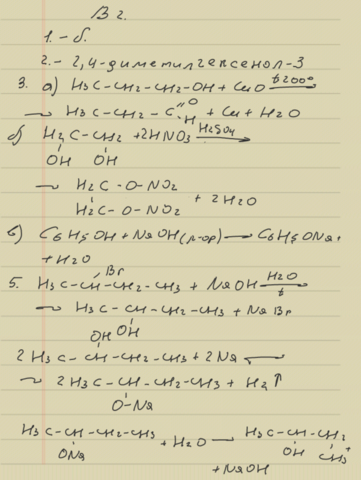 В 2.
1. - б.
2. - 2,4-диметилгексенол-3
3. а) H3C-CH2-CH2-CH2-OH + CuO t200°
→ H3C-CH2-CH2-C=O H + Cu + H2O
б) H2C-CH2 + 2HNO3 H2SO4
OH OH
→ H2C-O-NO2
H2C-O-NO2 + 2H2O
в) C6H5OH + NaOH(р-ор) → C6H5ONa +
+ H2O
Br
5. H3C-CH-CH2-CH3 + NaOH H2O t
→ H3C-CH-CH2-CH3 + NaBr
OH OH
2H3C-CH-CH2-CH3 + 2Na
→ 2H3C-CH-CH2-CH3 + H2↑
O-Na
H3C-CH-CH2-CH3 + H2O → H3C-CH-CH2
ONa OH CH3 +
+ NaOH